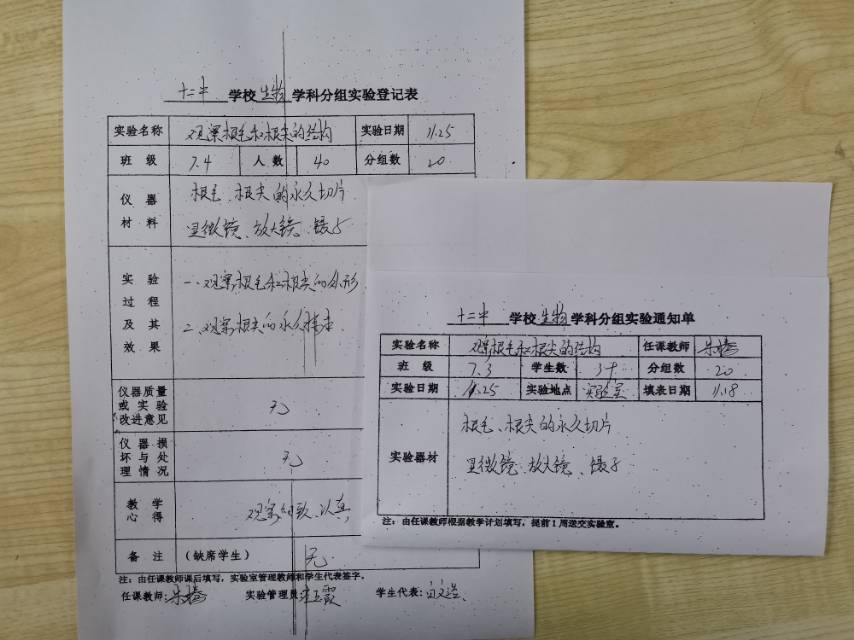 十二中 学校 生物 学科分组实验登记表
实验名称 观察根毛和根尖的结构 实验日期 11.25
班 级 7.4 人 数 40 分组数 20
仪 器 材 料 根毛、根尖的永久切片
显微镜、放大镜、镊子
实 验 过 程 及 其 效 果 一、观察根毛和根尖的外形
二、观察根尖的永久标本
仪器质量或实验改进意见 无
仪器损坏与处理情况 无
教 学 心 得 观察细致、认真
备 注 (缺席学生) 无
注：由任课教师课后填写，实验室管理教师和学生代表签字。
任课教师: 朱 实验管理员: 玉霞 学生代表:
十二中 学校 生物 学科分组实验通知单
实验名称 观察根毛和根尖的结构 任课教师 朱
班 级 7.3 学生数 分组数 20
实验日期 11.25 实验地点 实验室 填表日期 11.18
实验器材 根毛、根尖的永久切片
显微镜、放大镜、镊子
注：由任课教师根据教学计划填写，提前1周送交实验室。